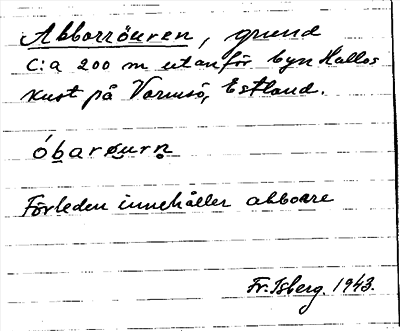 Abborröuren, grund
c:a 200 m utanför byn Hullos
kust på Vormsö, Estland.
óbarøurn
Förleden innehåller abborre
Fr. Isberg. 1943.